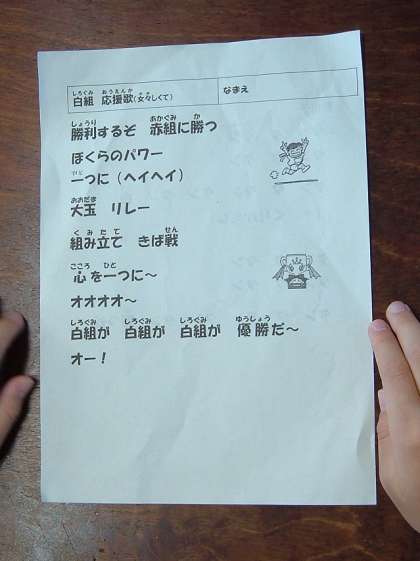 白組 応援歌(女々しくて) なまえ
勝利するぞ 赤組に勝つ
ぼくらのパワー
一つに（ヘイヘイ）
大玉 リレー
組み立て きば戦
心を一つに～
オオオオ～
白組が 白組が 白組が 優勝だ～
オー！